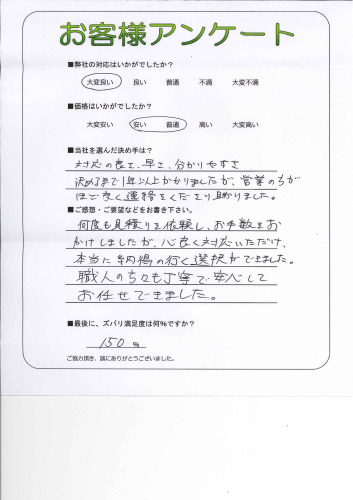 お客様アンケート
■弊社の対応はいかがでしたか？
大変良い 良い 普通 不満 大変不満
■価格はいかがでしたか？
大変安い 安い 普通 高い 大変高い
■当社を選んだ決め手は？
対応の良さ、早さ、分かりやすさ
決めるまで1年以上かかりましたが、営業の方が
ほど良く連絡をくださり助かりました。
■ご感想・ご要望などをお書き下さい。
何度も見積りを依頼し、お手数をお
かけしましたが、心良く対応いただけ、
本当に納得の行く選択ができました。
職人の方々も丁寧で安心して
お任せできました。
■最後に、ズバリ満足度は何%ですか？
150 %
ご協力頂き、誠にありがとうございました。